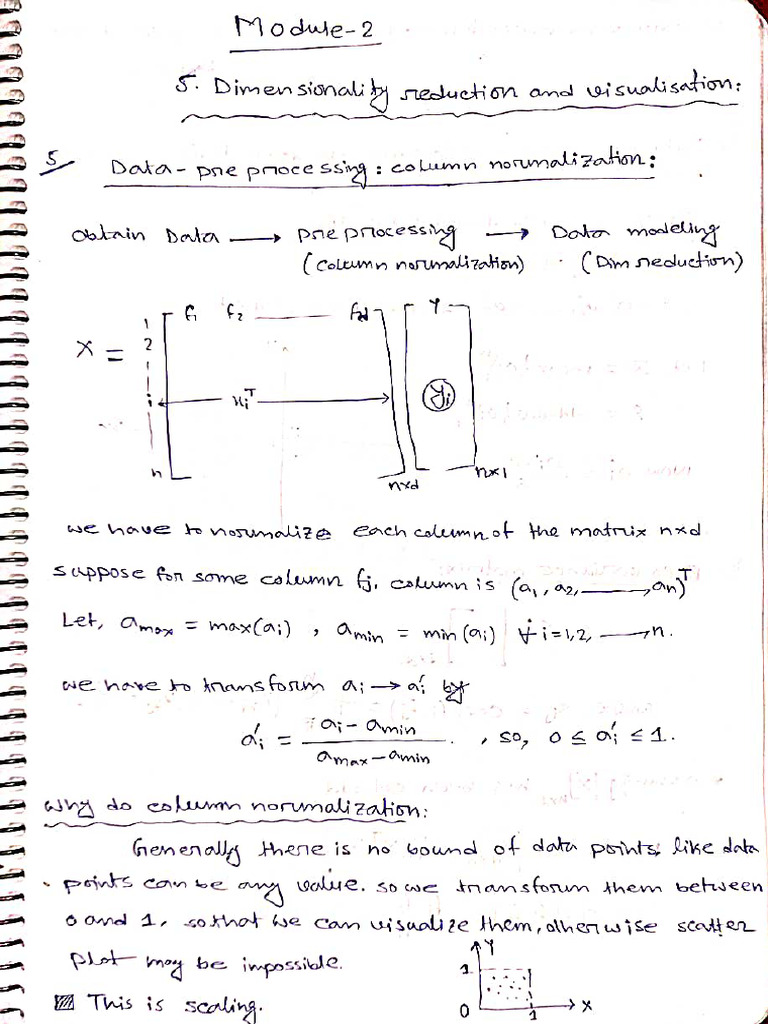 Module-2
5. Dimensionality reduction and visualisation:
5 Data-preprocessing: column normalization:
Obtain Data → preprocessing → Data modeling
(column normalization) (Dim reduction)
f₁ f₂ fd Y
1
X = 2
i xᵢᵀ yᵢ
n n×d n×1
we have to normalize each column of the matrix n×d
suppose for some column fj, column is (a₁, a₂, ——, an)ᵀ
Let, amax = max(aᵢ), amin = min(aᵢ) ∀ i=1,2, —— n.
we have to transform aᵢ → a'ᵢ by
a'ᵢ = (aᵢ - amin) / (amax - amin) , so, 0 ≤ a'ᵢ ≤ 1.
Why do column normalization:
Generally there is no bound of data points, like data
points can be any value. so we transform them between
0 and 1, so that we can visualize them, otherwise scatter
plot may be impossible.
This is scaling.
Y
1
0 1 X